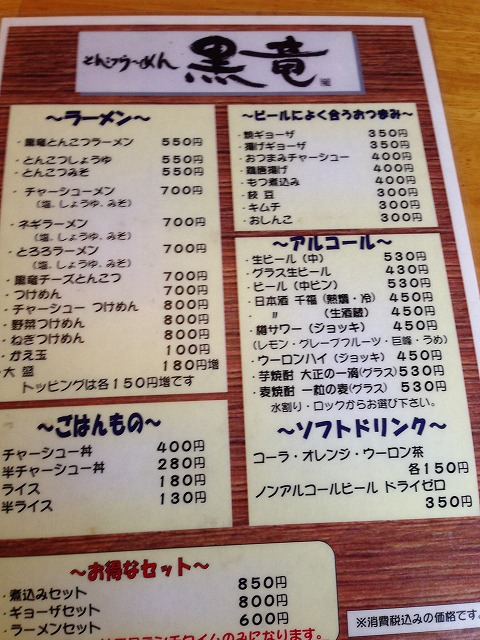 とんこつらーめん 黒竜
～ラーメン～
・黒竜とんこつラーメン 550円
・とんこつしょうゆ 550円
・とんこつみそ 550円
・チャーシューメン 700円
(塩、しょうゆ、みそ)
・ネギラーメン 700円
(塩、しょうゆ、みそ)
・とろろラーメン 700円
(塩、しょうゆ、みそ)
・黒竜チーズとんこつ 700円
・つけめん 700円
・チャーシュー つけめん 800円
・野菜つけめん 800円
・ねぎつけめん 800円
・かえ玉 100円
・大 盛 180円増
トッピングは各150円増です
～ごはんもの～
チャーシュー丼 400円
半チャーシュー丼 280円
ライス 180円
半ライス 130円
～ビールによく合うおつまみ～
・焼ギョーザ 350円
・揚げギョーザ 350円
・おつまみチャーシュー 400円
・鶏唐揚げ 400円
・もつ煮込み 400円
・枝 豆 300円
・キムチ 300円
・おしんこ 300円
～アルコール～
・生ビール(中) 530円
・グラス生ビール 430円
・ビール(中ビン) 530円
・日本酒 千福(熱燗・冷) 450円
・ 〃 (生酒蔵) 450円
・樽サワー(ジョッキ) 450円
(レモン・グレープフルーツ・巨峰・うめ)
・ウーロンハイ(ジョッキ) 450円
・芋焼酎 大正の一滴(グラス) 530円
・麦焼酎 一粒の麦(グラス) 530円
水割り・ロックからお選び下さい。
～ソフトドリンク～
コーラ・オレンジ・ウーロン茶
各150円
ノンアルコールビール ドライゼロ
350円
～お得なセット～
・煮込みセット 850円
・ギョーザセット 800円
・ラーメンセット 600円
ランチタイムのみになります。
※消費税込みの価格です。